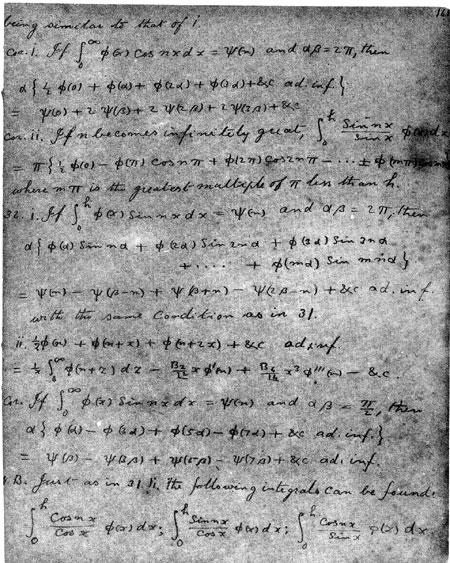 being similar to that of i
Cor. 1. If ∫₀^∞ φ(x) Cos nx dx = ψ(n) and αβ = 2π, then
α { ½ φ(0) + φ(α) + φ(2α) + φ(3α) + &c ad. inf. }
= ψ(0) + 2 ψ(β) + 2 ψ(2β) + 2 ψ(3β) + &c
Cor. ii. If n becomes infinitely great, ∫₀^h (Sin nx / Sin x) φ(x) dx
= π { ½ φ(0) − φ(π) Cos nπ + φ(2π) Cos 2nπ − ... ± φ(mπ)
where mπ is the greatest multiple of π less than h.
32. 1. If ∫₀^h φ(x) Sin nx dx = ψ(n) and αβ = 2π, then
α { φ(α) Sin nα + φ(2α) Sin 2nα + φ(3α) Sin 3nα
+ .... + φ(mα) Sin mnα }
= ψ(n) − ψ(β−n) + ψ(β+n) − ψ(2β−n) + &c ad. inf.
with the same condition as in 31.
ii. ½ φ(n) + φ(n+x) + φ(n+2x) + &c ad inf.
= 1/x ∫₀^∞ φ(n+z) dz − B₂/⌊2 x φ′(n) + B₄/⌊4 x³ φ‴(n) − &c.
Cor. If ∫₀^∞ φ(x) Sin nx dx = ψ(n) and αβ = π/2, then
α { φ(α) − φ(3α) + φ(5α) − φ(7α) + &c ad. inf. }
= ψ(β) − ψ(3β) + ψ(5β) − ψ(7β) + &c ad. inf.
N.B. Just as in 31 ii. the following integrals can be found.
∫₀^h (Cos nx / Cos x) φ(x) dx ; ∫₀^h (Sin nx / Cos x) φ(x) dx ; ∫₀^h (Cos nx / Sin x) φ(x) dx